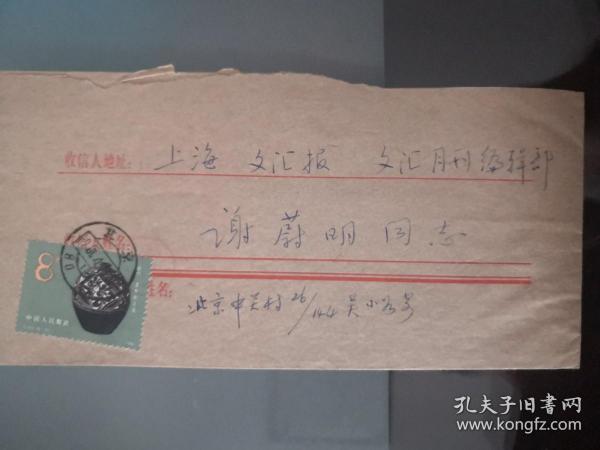 收信人地址: 上海 文汇报 文汇月刊编辑部
谢蔚明同志
姓名:
北京中关村26/144 吴小
8
中国人民邮政
孔夫子旧书网
www.kongfz.com